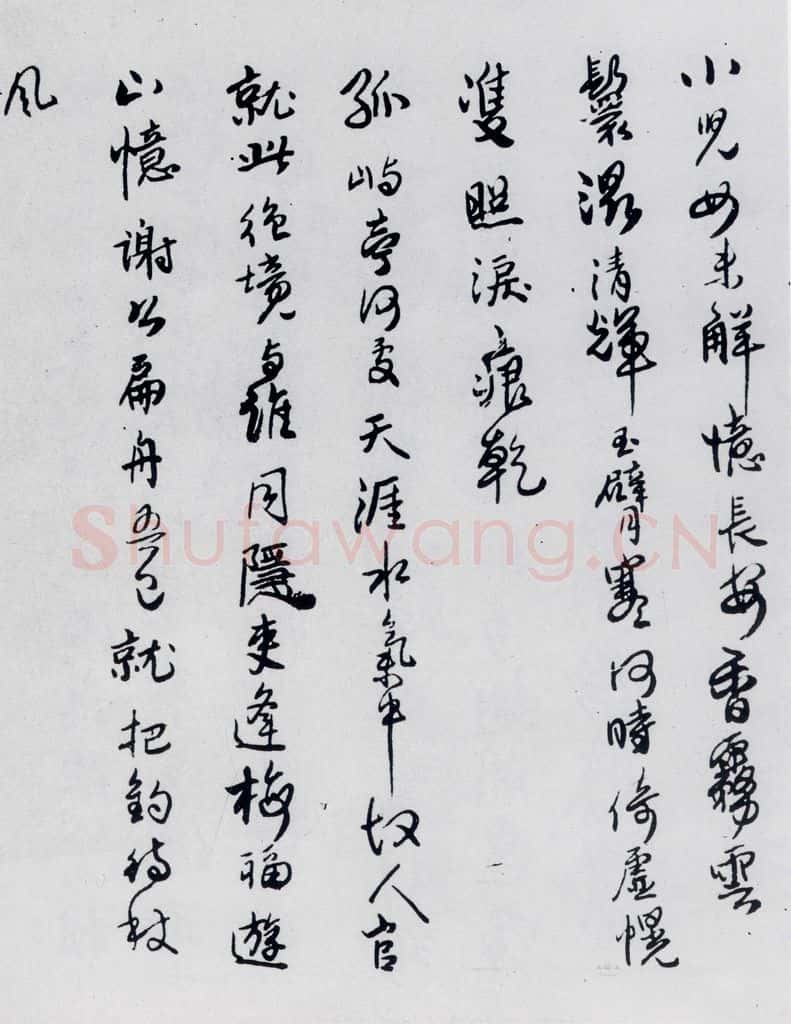 小兒女未解憶長安香霧雲
鬟濕清輝玉臂寒何時倚虛幌
雙照淚痕乾
孤嶼亭何處天涯水氣中故人官
就此絕境與誰同隱吏逢梅福遊
山憶謝公扁舟吾已就把釣待秋
風
Shufawang.CN